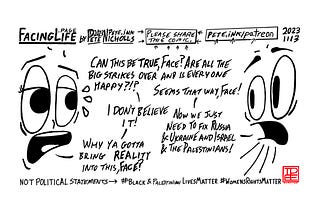 FACINGLIFE PAGE
PETE.INK
BY PETE NICHOLLS
PLEASE SHARE
THIS COMIC.
PETE.INK/patreon
2023
1113
CAN THIS BE TRUE, FACE? ARE ALL THE
BIG STRIKES OVER AND IS EVERYONE
HAPPY?!?
SEEMS THAT WAY, FACE!
I DON'T BELIEVE
IT!
NOW WE JUST
NEED TO FIX RUSSIA
& UKRAINE AND ISRAEL
& THE PALESTINIANS!
WHY YA GOTTA
BRING REALITY
INTO THIS, FACE?
NOT POLITICAL STATEMENTS → #BLACK & PALESTINIAN LIVESMATTER #WOMENSRIGHTSMATTER